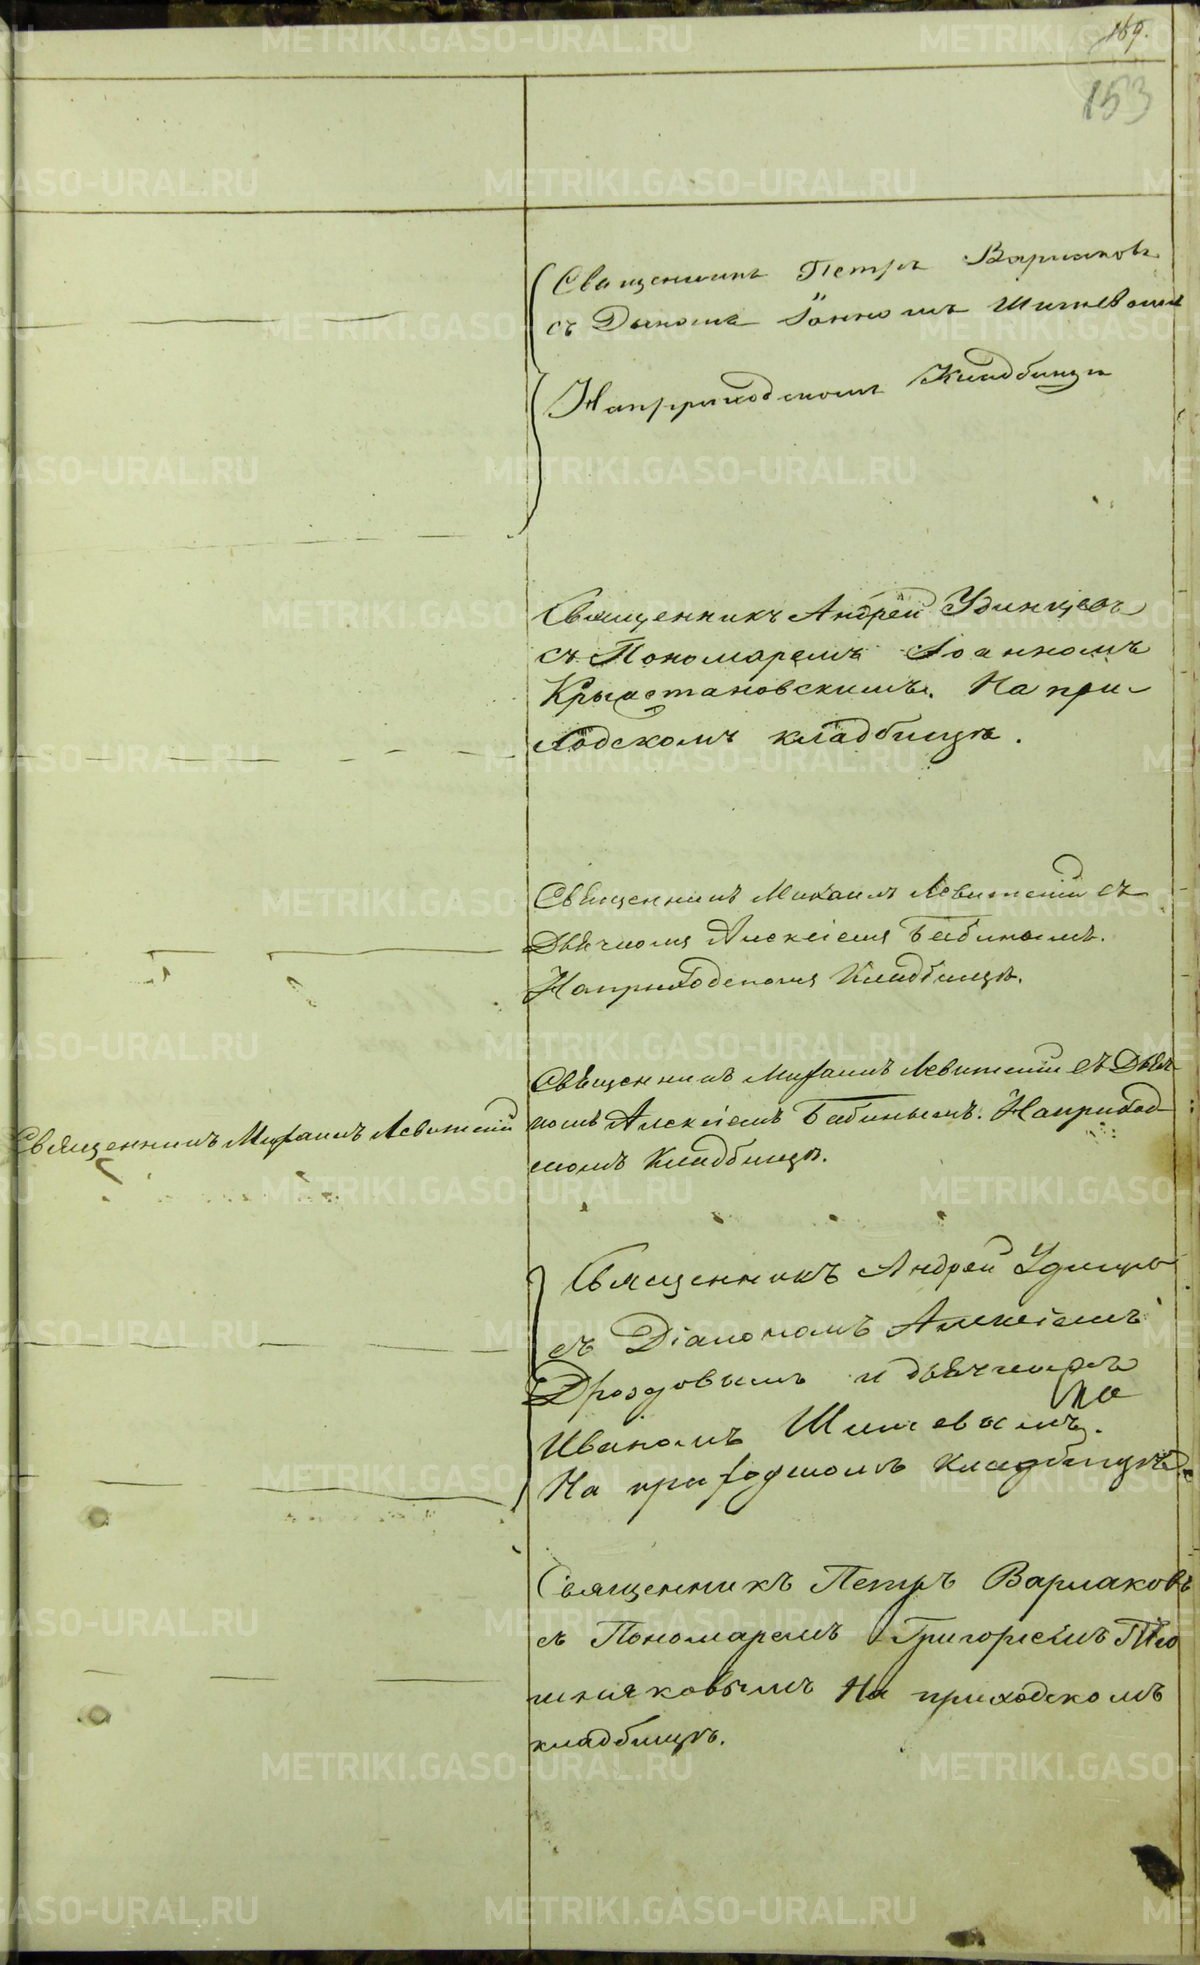 169.
153
Священникъ Петръ Варлаковъ
съ Дьякомъ Іоанномъ Шишевымъ
На приходскомъ Кладбищѣ
Священникъ Андрей Удинцевъ
съ Пономаремъ Іоанномъ
На при-
ходскомъ кладбищѣ.
Священникъ Михаилъ Левитскій съ
Дьячкомъ Алексіемъ Бабинымъ.
На приходскомъ Кладбищѣ.
Священникъ Михаилъ Левитскій съ Дьяч-
Священникъ Михаилъ Левитскій
комъ Алексіемъ Бабинымъ. На приход-
скомъ Кладбищѣ.
Священникъ Андрей Удинцовъ
съ Діакономъ Алексіемъ
Дроздовымъ и дьячкомъ
Иваномъ Шишевымъ.
На приходскомъ кладбищѣ.
Священникъ Петръ Варлаковъ
съ Пономаремъ Григоріемъ
На приходскомъ
кладбищѣ.
METRIKI.GASO-URAL.RU